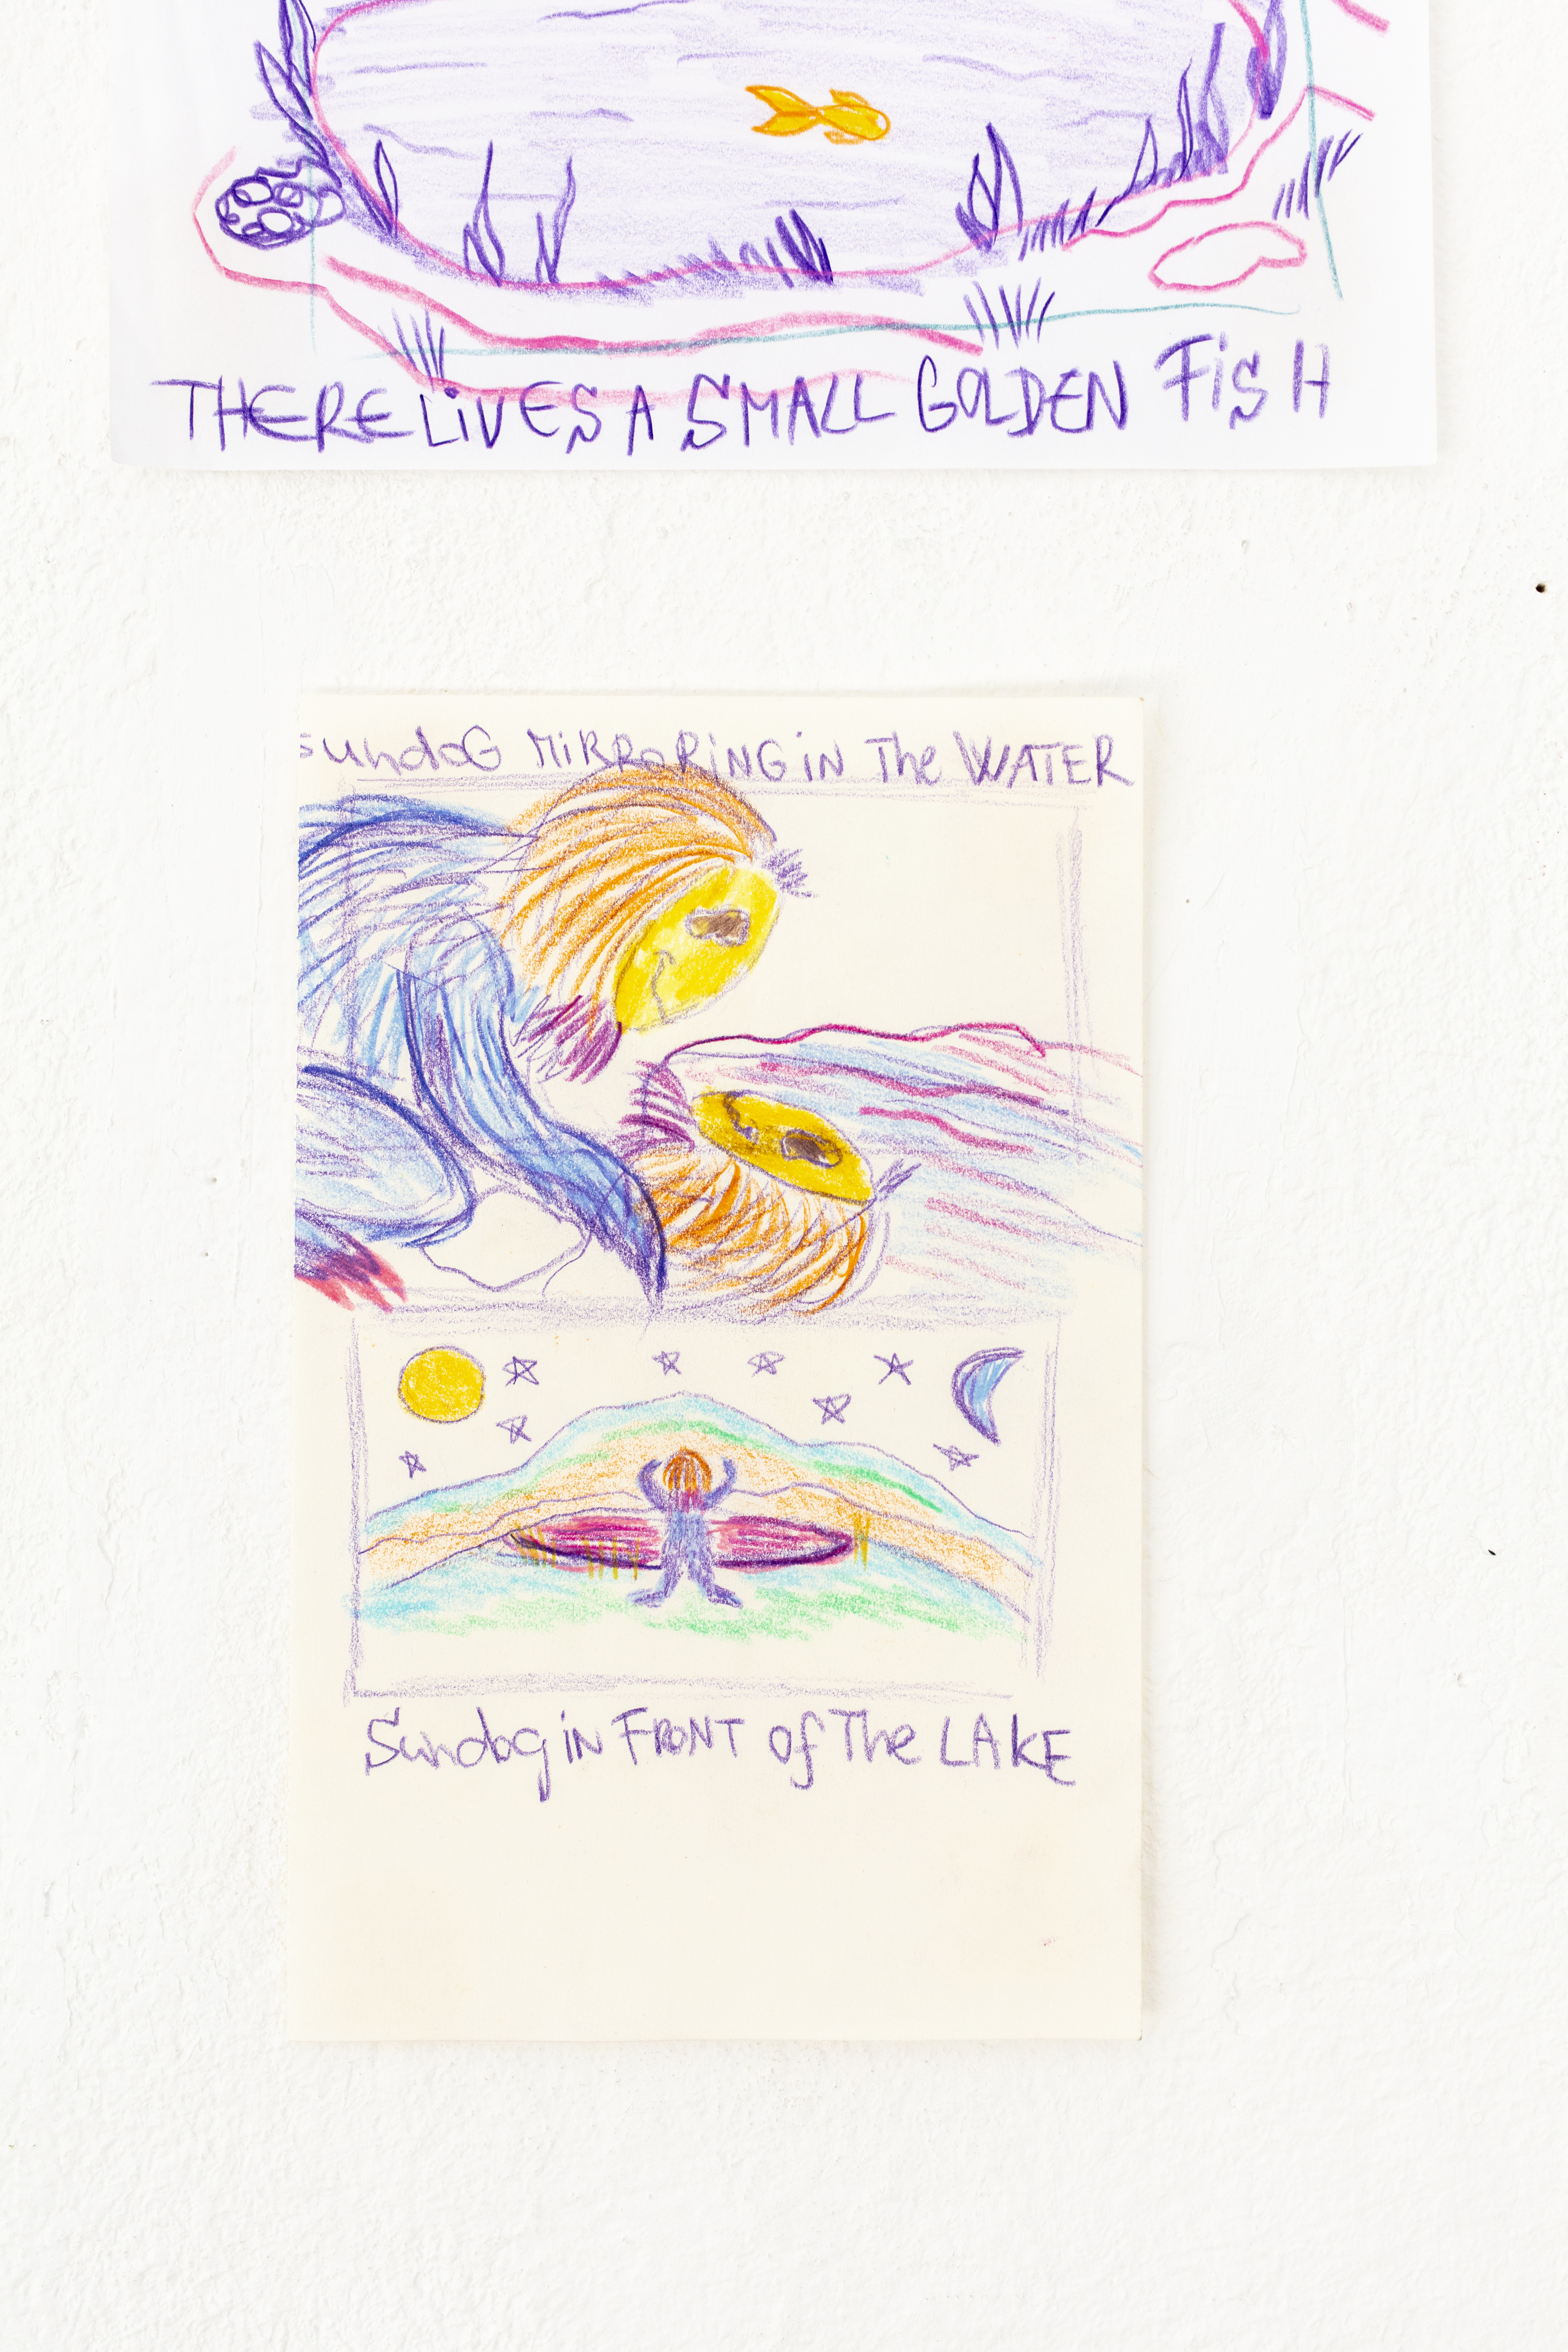 THERE LiVES A SMALL GOLDEN FiSH
SundoG MiRRoRiNG iN The WATER
Sundog iN FRONT of The LAKE